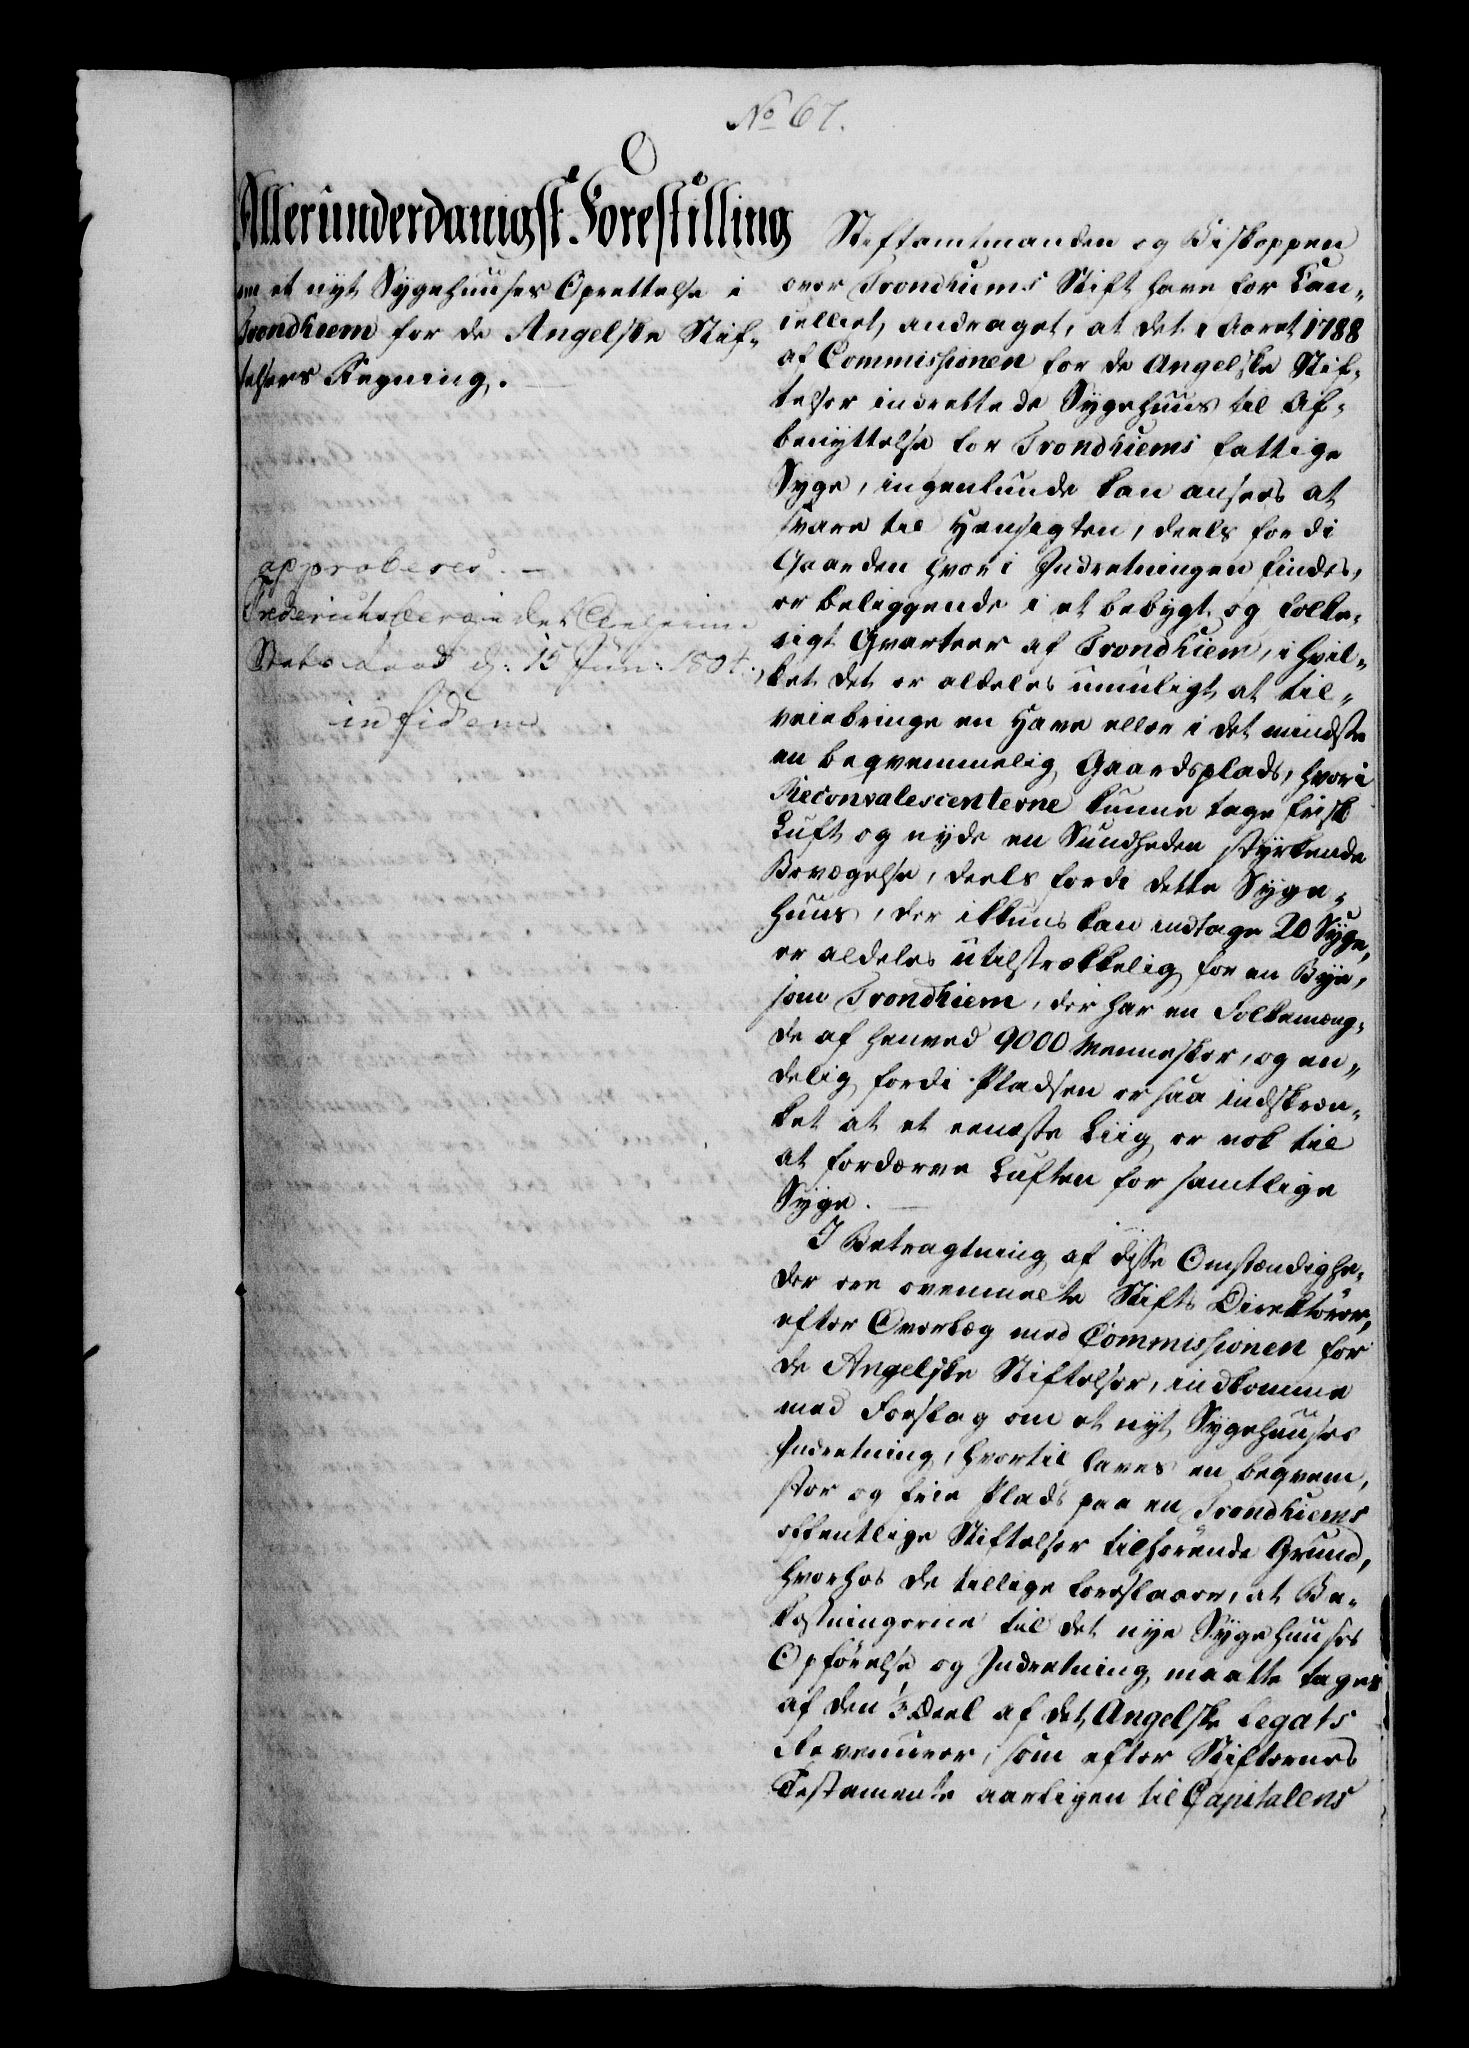 No 67.
Allerunderdanigst Forestilling
om et nyt Sygehuuses Oprettelse i
Trondhiem for de Angelske Stif-
telsers Regning.
approberes. –
Friderichsberg i det Geheime
Stats Raad d: 15 Jun: 1804.
in fidem
Stiftamtmanden og Biskoppen
over Trondhiems Stift have for Can-
celliet, andraget, at det i Aaret 1788
af Commissionen for de Angelske Stif-
telser indrettede Sygehuus til Af-
benyttelse for Trondhiems fattige
Syge, ingenlunde kan ansees at
svare til Hensigten, deels fordi
Gaarden hvori Indretningen findes,
er beliggende i et bebygt og folke-
rigt Qvarteer af Trondhiem, i hvil-
ket det er aldeles umuligt at til-
veiebringe en Have eller i det mindste
en beqvemmelig Gaardsplads, hvori
Reconvalescenterne kunne tage frisk
Luft og nyde en Sundheden styrkende
Bevægelse, deels fordi dette Syge-
huus, der ikkuns kan indtage 20 Syge,
er aldeles utilstrækkelig for en Bye,
som Trondhiem, der har en Folkemæng-
de af henved 9000 Mennesker, og en-
delig fordi Pladsen er saa indskræn-
ket at et eeneste Liig er nok til
at fordærve Luften for samtlige
Syge. –
I Betragtning af disse Omstændighe-
der ere ovenmelte Stifts Direktörer,
efter Overlæg med Commissionen for
de Angelske Stiftelser, indkomne
med Forslag om et nyt Sygehuuses
Indretning, hvortil haves en beqvem,
stor og friе Plads paa en Trondhiems
offentlige Stiftelser tilhörende Grund,
hvorhos de tillige foreslaaer, at Be-
kostningerne til det nye Sygehuuses
Opförelse og Indretning maatte tages
af den 1/3 Deel af det Angelske Legats
Revenuer, som efter Stifternes
Testamente aarligen til Capitalens